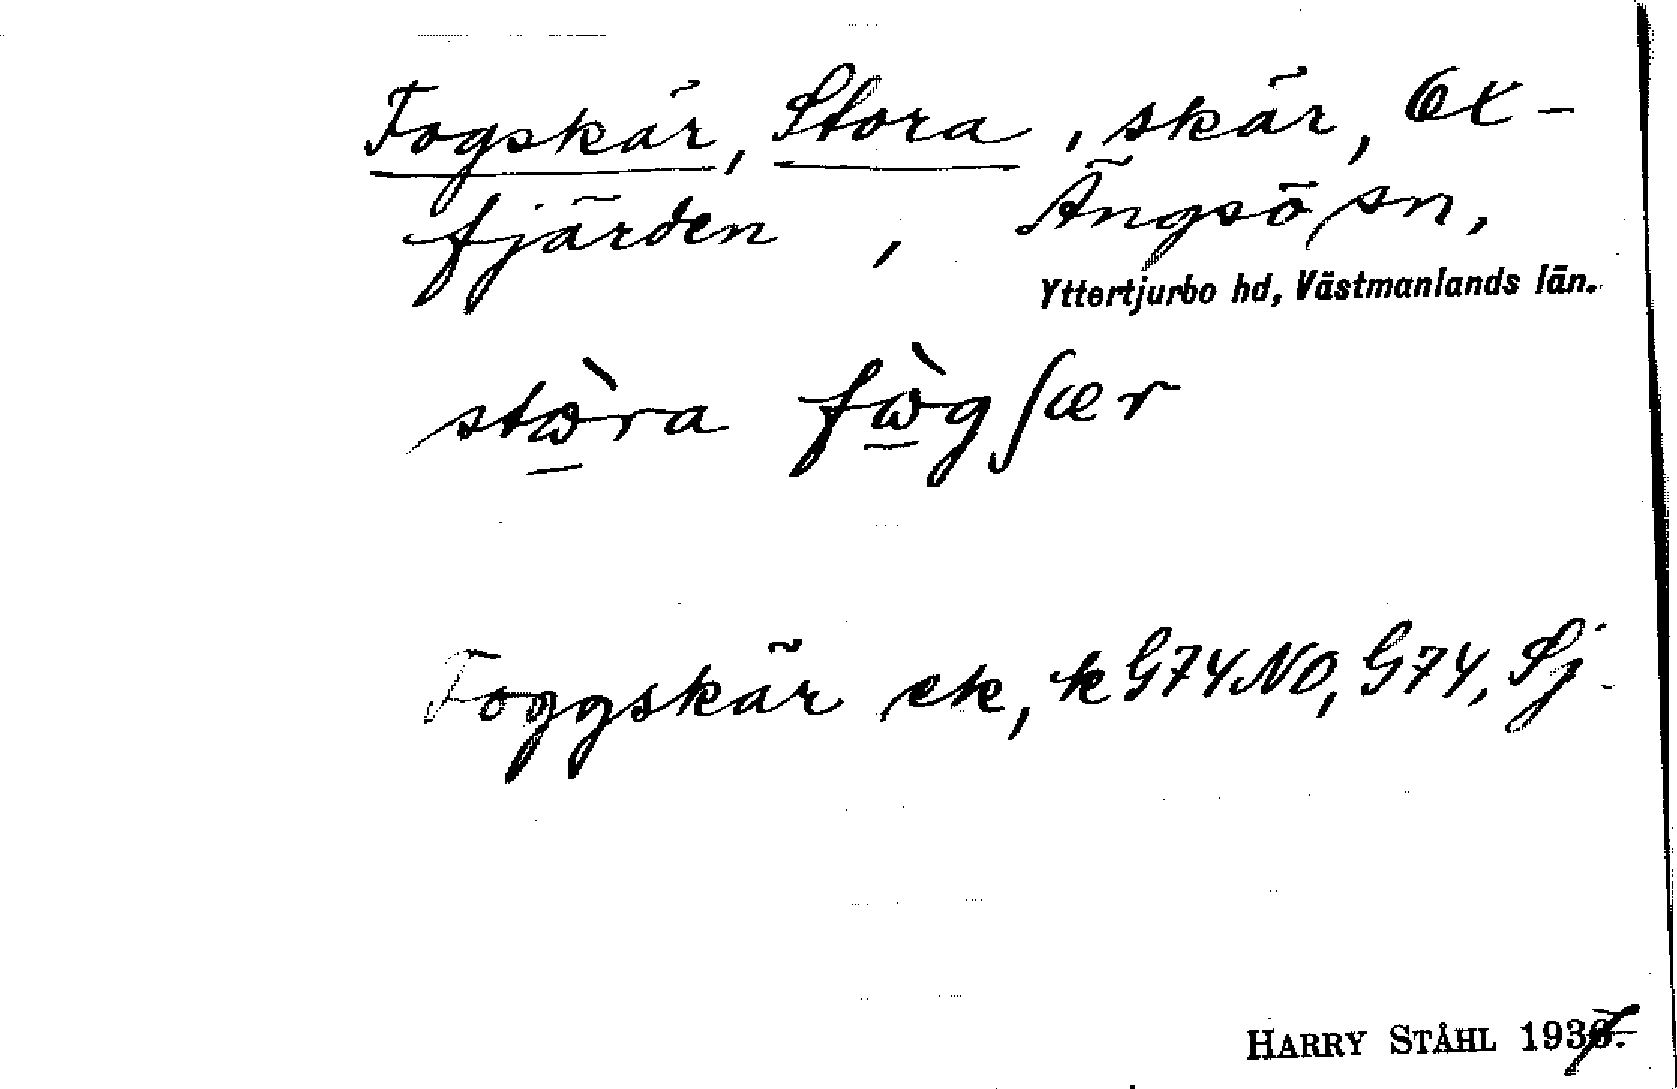 Fogskär, Stora, skär, Ox-
fjärden, Ängsö sn,
Yttertjurbo hd, Västmanlands län.
stὼ̱ra fὼ̱gʃær
Foggskär ek, k G74NO, G74, Sj.
HARRY STÅHL 1937.